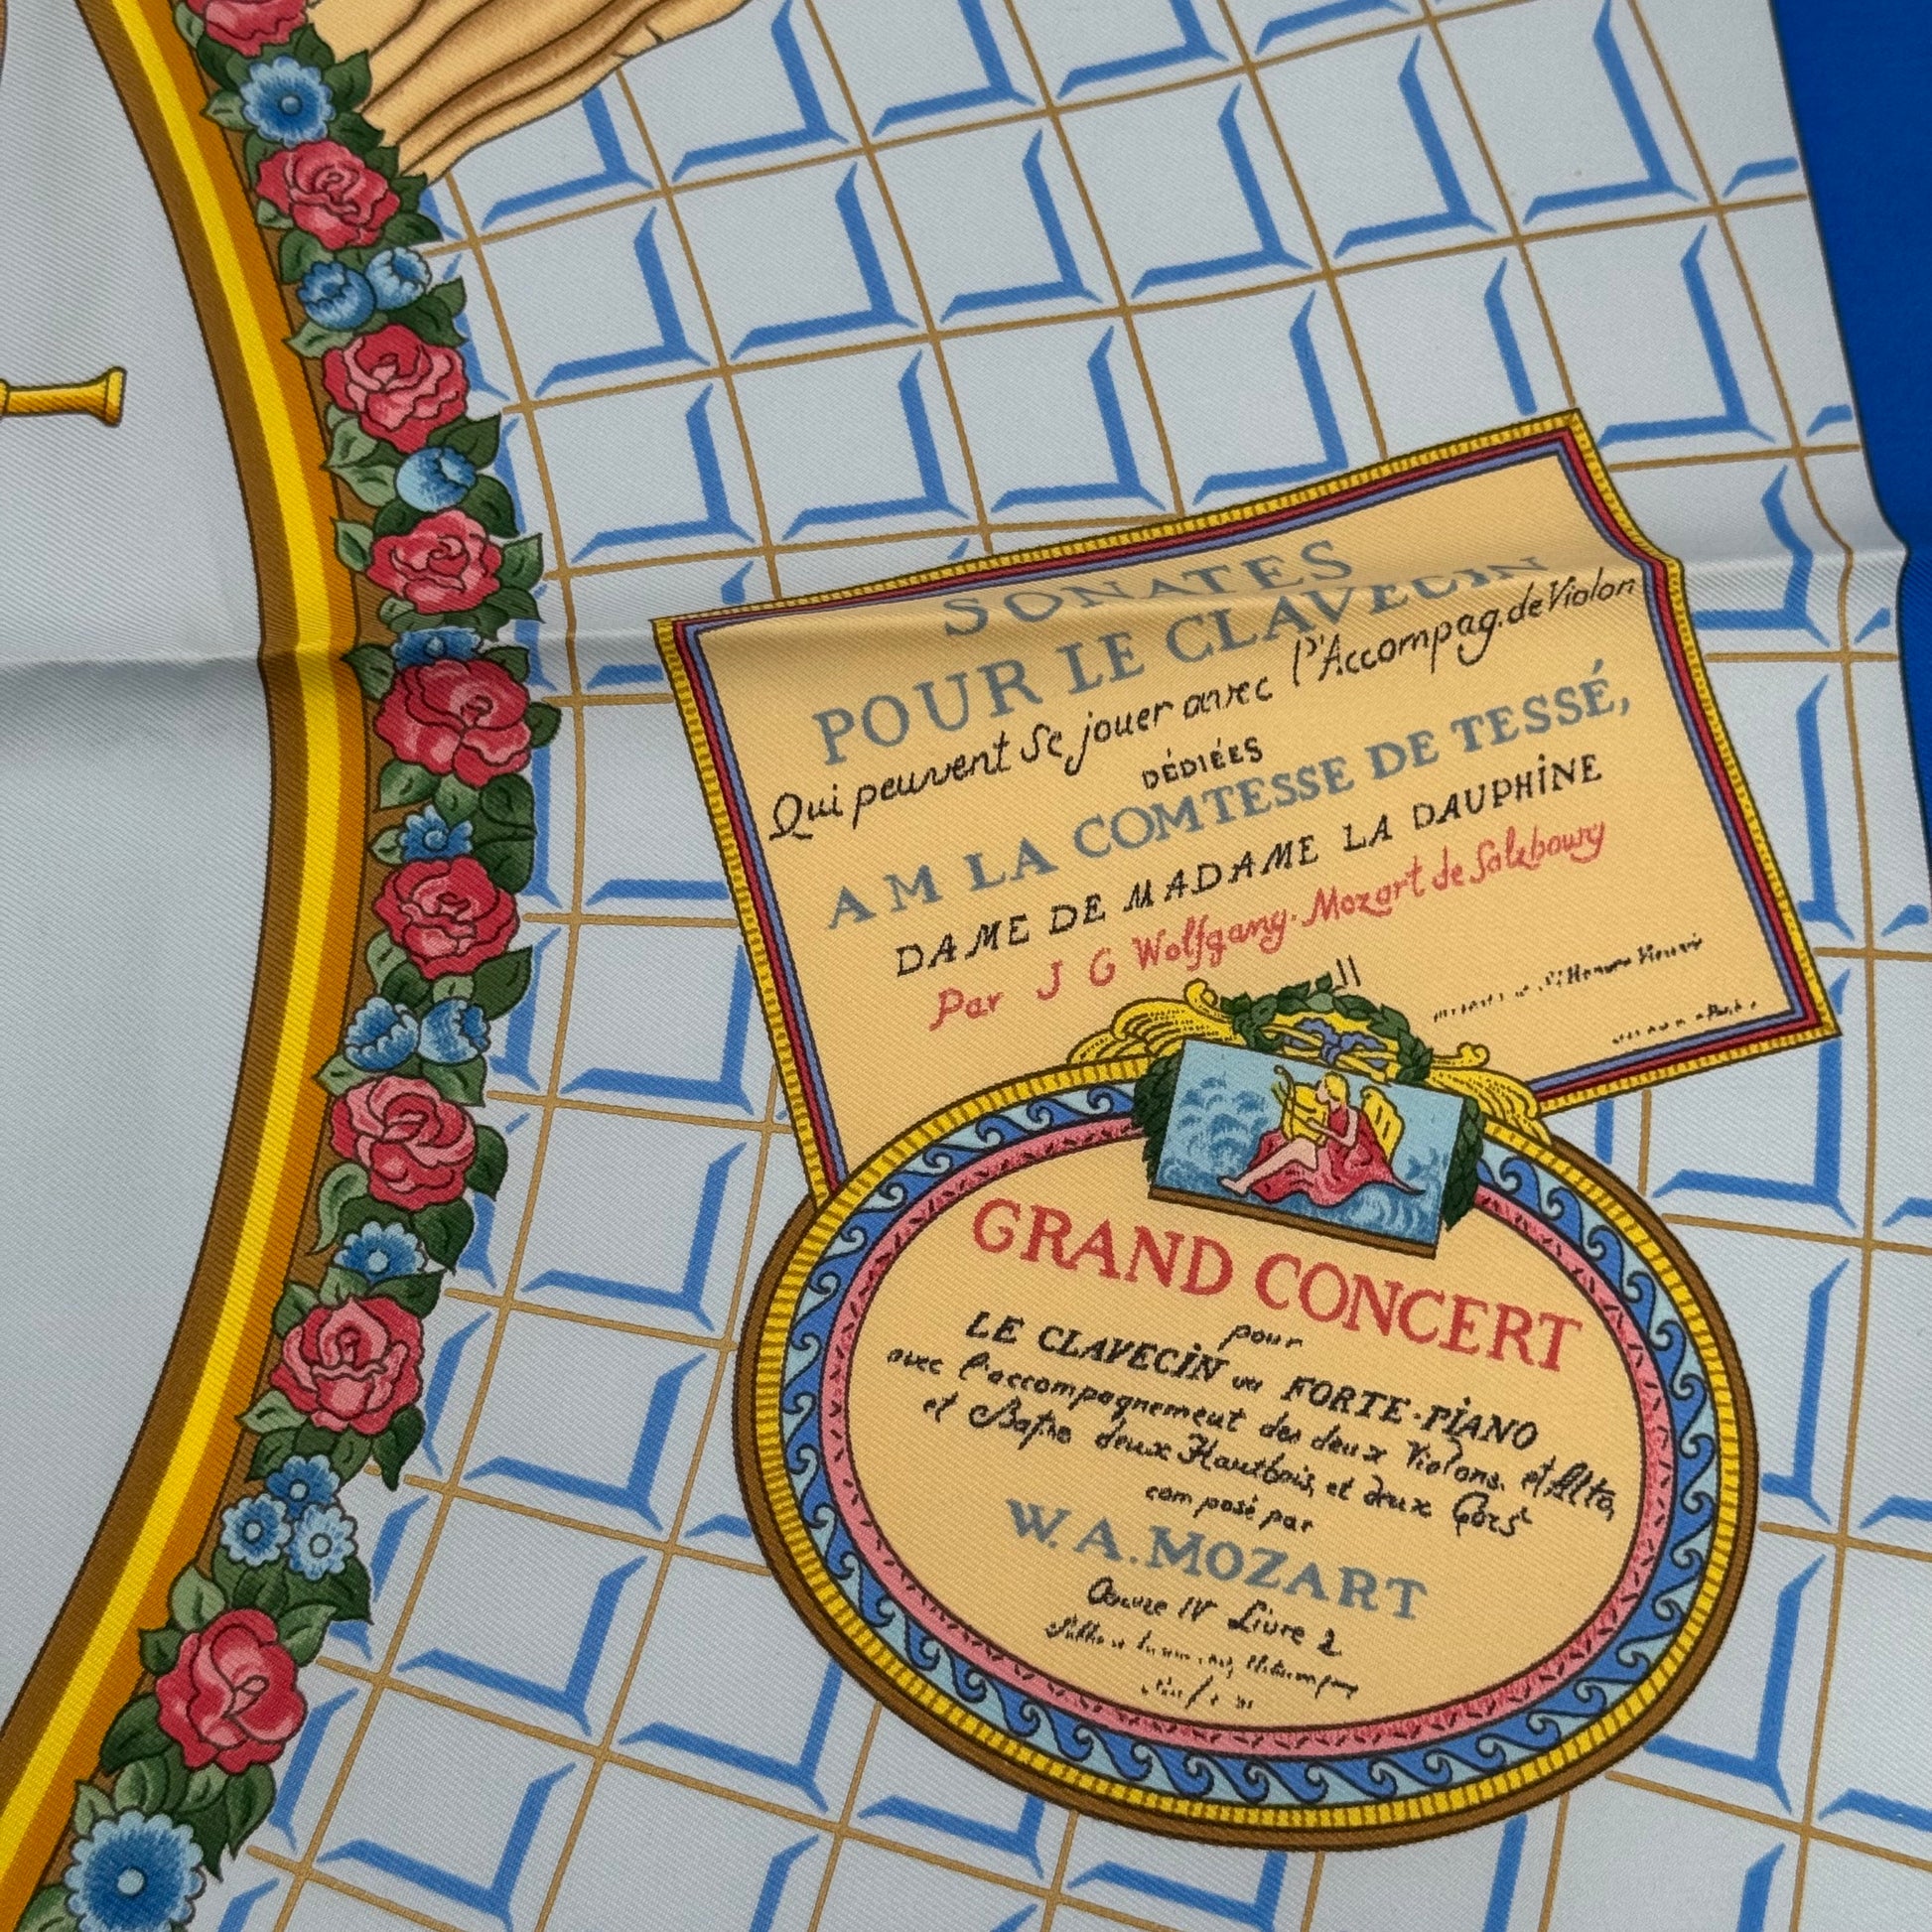 SONATES
POUR LE CLAVECIN
Qui peuvent Se jouer avec l'Accompag. de Violon
DÉDIÉES
A M LA COMTESSE DE TESSÉ,
DAME DE MADAME LA DAUPHINE
Par J G Wolfgang. Mozart de Salzbourg
GRAND CONCERT
pour
LE CLAVECIN ou FORTE-PIANO
avec l'accompagnement des deux Violons. et Alto,
et Basse deux Hautbois, et deux Cors
composé par
W. A. MOZART
Œuvre IV Livre 2